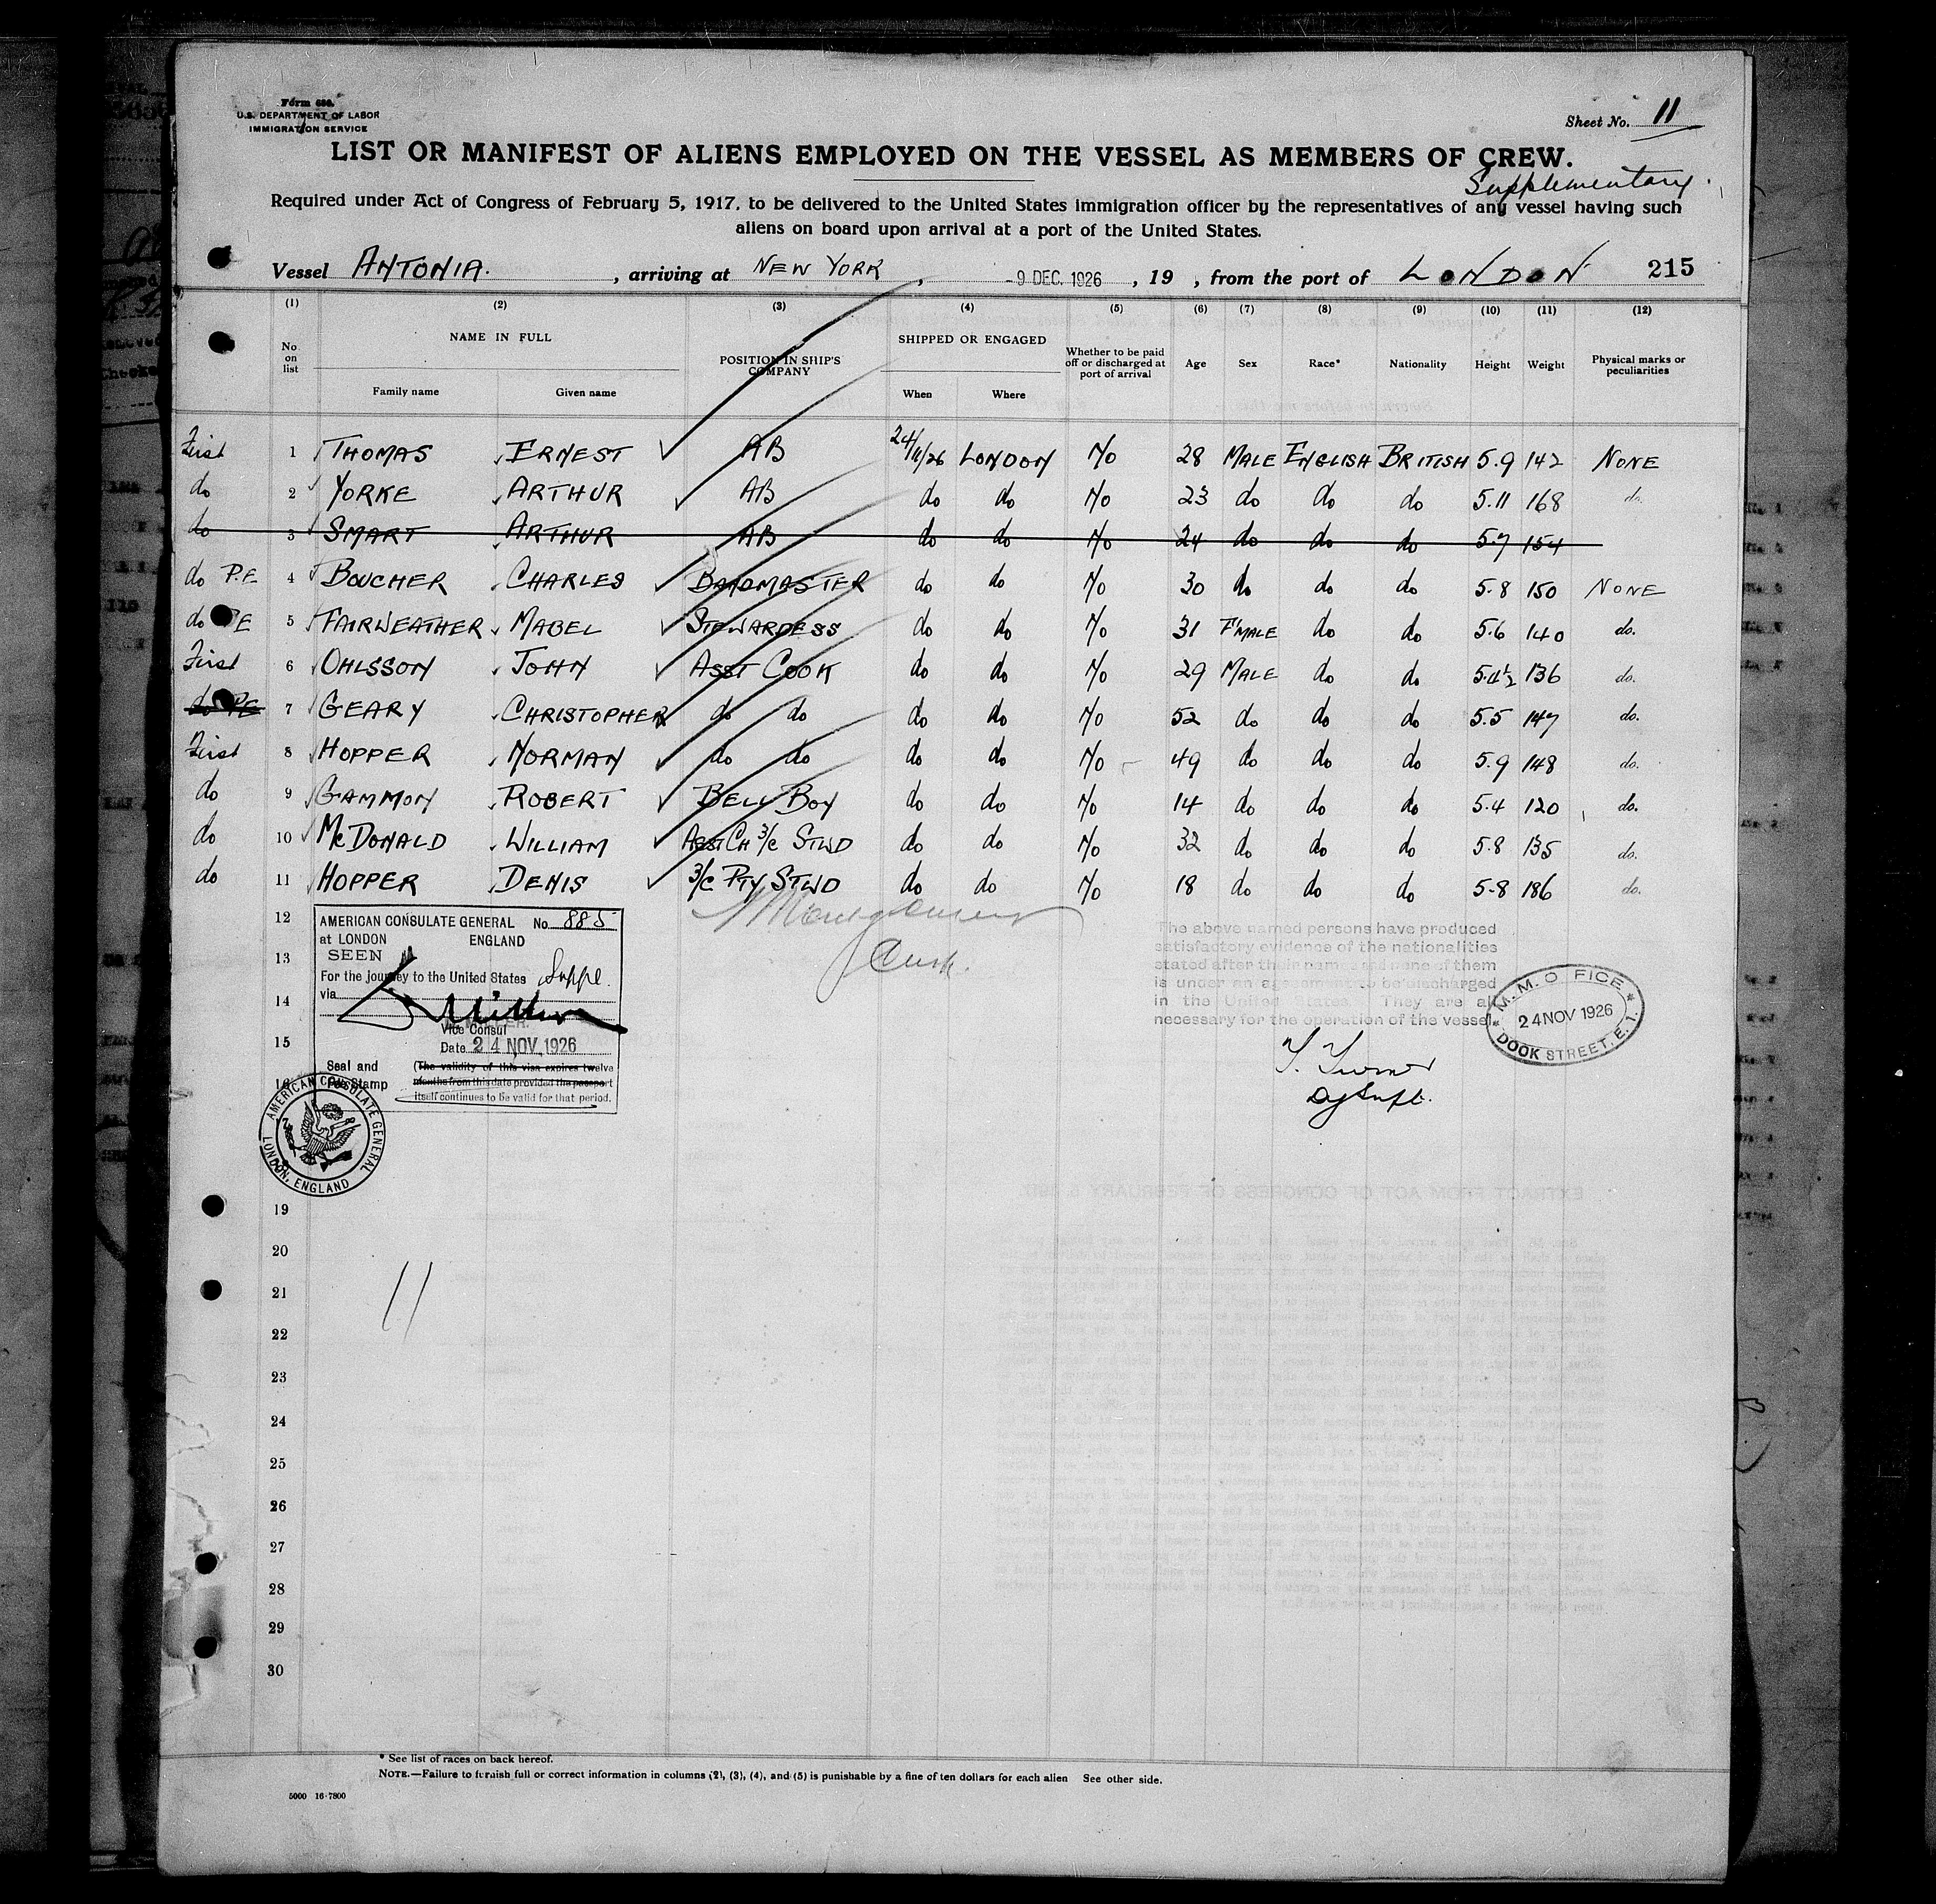 Form 680.
U.S. DEPARTMENT OF LABOR
IMMIGRATION SERVICE
Sheet No. 11
LIST OR MANIFEST OF ALIENS EMPLOYED ON THE VESSEL AS MEMBERS OF CREW.
Supplementary.
Required under Act of Congress of February 5, 1917, to be delivered to the United States immigration officer by the representatives of any vessel having such
aliens on board upon arrival at a port of the United States.
Vessel ANTONIA. , arriving at NEW YORK , - 9 DEC. 1926 , 19 , from the port of LONDON 215
(1) (2) (3) (4) (5) (6) (7) (8) (9) (10) (11) (12)
No on list NAME IN FULL Family name Given name POSITION IN SHIP'S COMPANY SHIPPED OR ENGAGED When Where Whether to be paid off or discharged at port of arrival Age Sex Race* Nationality Height Weight Physical marks or peculiarities
First 1 THOMAS ERNEST AB 24/11/26 LONDON No 28 MALE ENGLISH BRITISH 5.9 142 NONE
do 2 YORKE ARTHUR AB do do No 23 do do do 5.11 168 do.
do 3 SMART ARTHUR AB do do No 24 do do do 5.7 154
do P.E 4 BOUCHER CHARLES BANDMASTER do do No 30 do do do 5.8 150 NONE
do PE 5 FAIRWEATHER MABEL STEWARDESS do do No 31 F'MALE do do 5.6 140 do.
First 6 OHLSSON JOHN ASST COOK do do No 29 MALE do do 5.4½ 136 do.
do PE 7 GEARY CHRISTOPHER do do do do No 52 do do do 5.5 147 do.
First 8 HOPPER NORMAN do do do do No 49 do do do 5.9 148 do.
do 9 GAMMON ROBERT BELL BOY do do No 14 do do do 5.4 120 do.
do 10 McDONALD WILLIAM ASST CH 3/C STWD do do No 32 do do do 5.8 135 do.
do 11 HOPPER DENIS 3/C PTY STWD do do No 18 do do do 5.8 186 do.
12
13
14
15
16
AMERICAN CONSULATE GENERAL No. 885
at LONDON ENGLAND
SEEN
For the journey to the United States Suppl.
via
Vice Consul
Date 24 NOV. 1926
Seal and
Fee Stamp
(The validity of this visa expires twelve
months from this date provided the passport
itself continues to be valid for that period.
AMERICAN CONSULATE GENERAL
LONDON, ENGLAND
The above named persons have produced
satisfactory evidence of the nationalities
stated after their names and none of them
is under an agreement to be discharged
in the United States. They are all
necessary for the operation of the vessel.
M. M. OFFICE
24 NOV 1926
DOCK STREET. E. 1.
Turner
Dy Supt.
19
20
21
11
22
23
24
25
26
27
28
29
30
* See list of races on back hereof.
NOTE.—Failure to furnish full or correct information in columns (2), (3), (4), and (5) is punishable by a fine of ten dollars for each alien See other side.
5000 16-7800